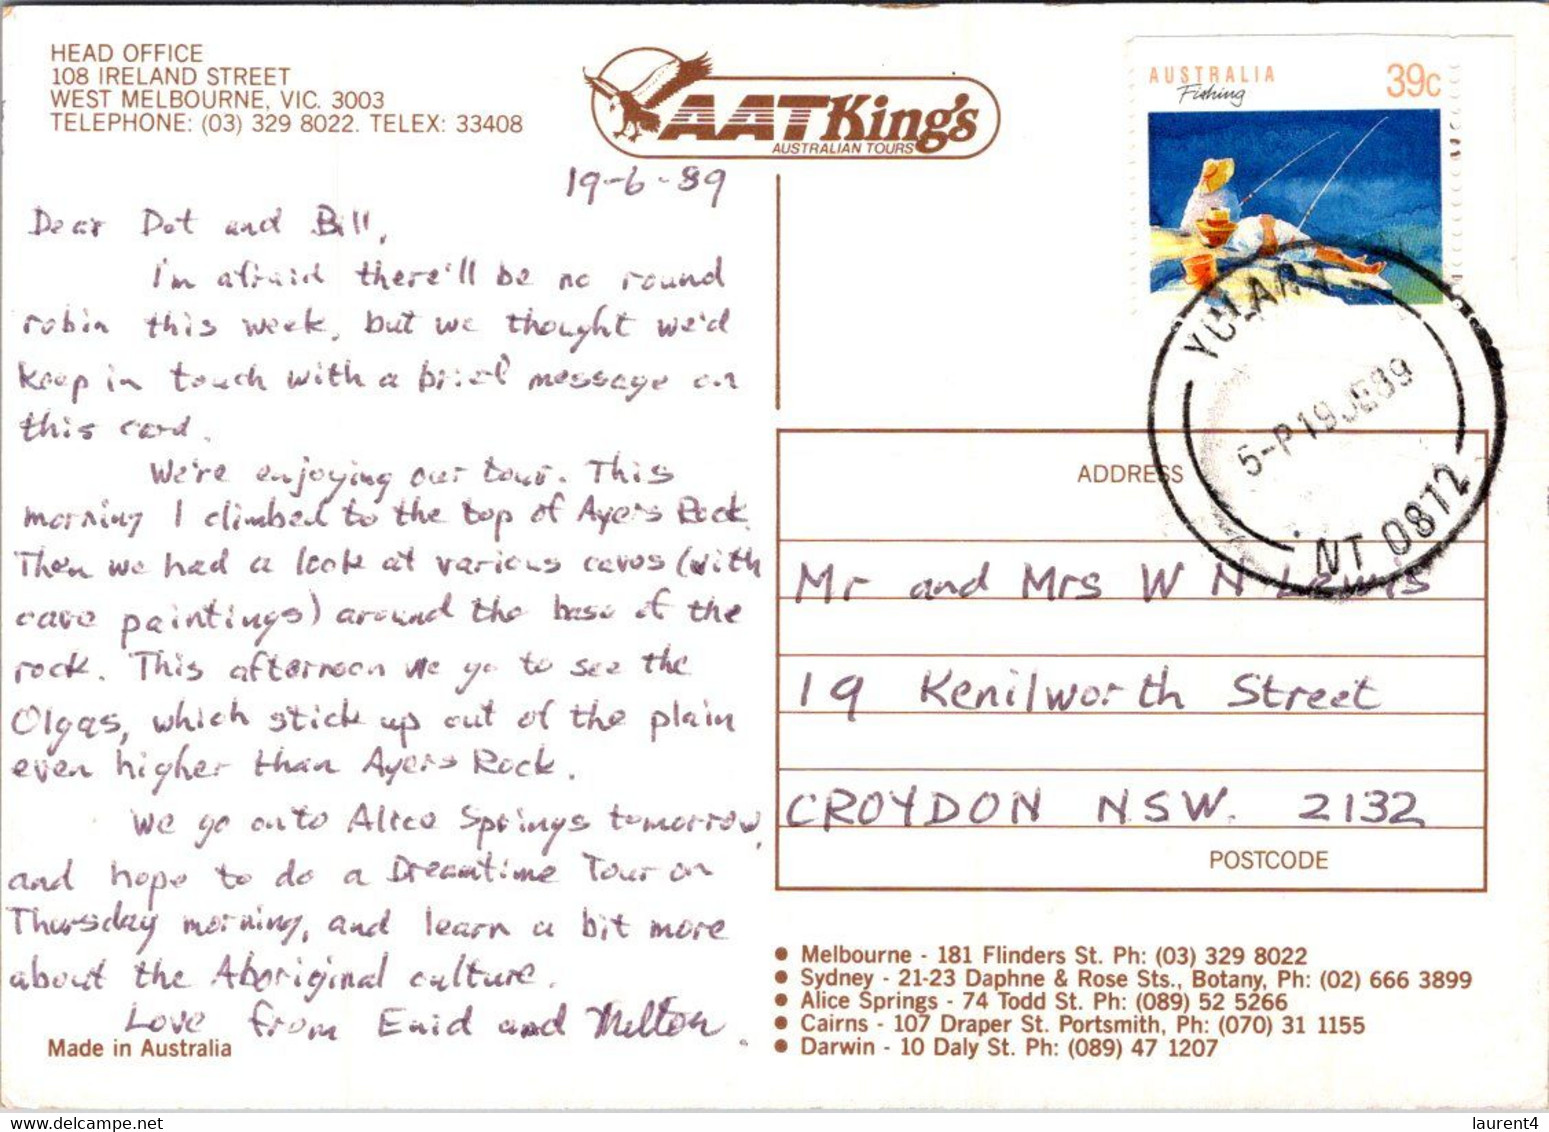 HEAD OFFICE
108 IRELAND STREET
WEST MELBOURNE, VIC. 3003
TELEPHONE: (03) 329 8022. TELEX: 33408
AAT King's
AUSTRALIAN TOURS
AUSTRALIA
Fishing
39c
19-6-89
Dear Dot and Bill,
I'm afraid there'll be no round
robin this week, but we thought we'd
keep in touch with a brief message on
this card.
We're enjoying our tour. This
morning I climbed to the top of Ayers Rock.
Then we had a look at various caves (with
cave paintings) around the base of the
rock. This afternoon we go to see the
Olgas, which stick up out of the plain
even higher than Ayers Rock.
We go onto Alice Springs tomorrow,
and hope to do a Dreamtime Tour on
Thursday morning, and learn a bit more
about the Aboriginal culture.
Love from Enid and Milton.
Made in Australia
YULARA
5-P19JE89
NT 0872
ADDRESS
Mr and Mrs W N Lewis
19 Kenilworth Street
CROYDON NSW. 2132
POSTCODE
• Melbourne - 181 Flinders St. Ph: (03) 329 8022
• Sydney - 21-23 Daphne & Rose Sts., Botany, Ph: (02) 666 3899
• Alice Springs - 74 Todd St. Ph: (089) 52 5266
• Cairns - 107 Draper St. Portsmith, Ph: (070) 31 1155
• Darwin - 10 Daly St. Ph: (089) 47 1207
laurent4